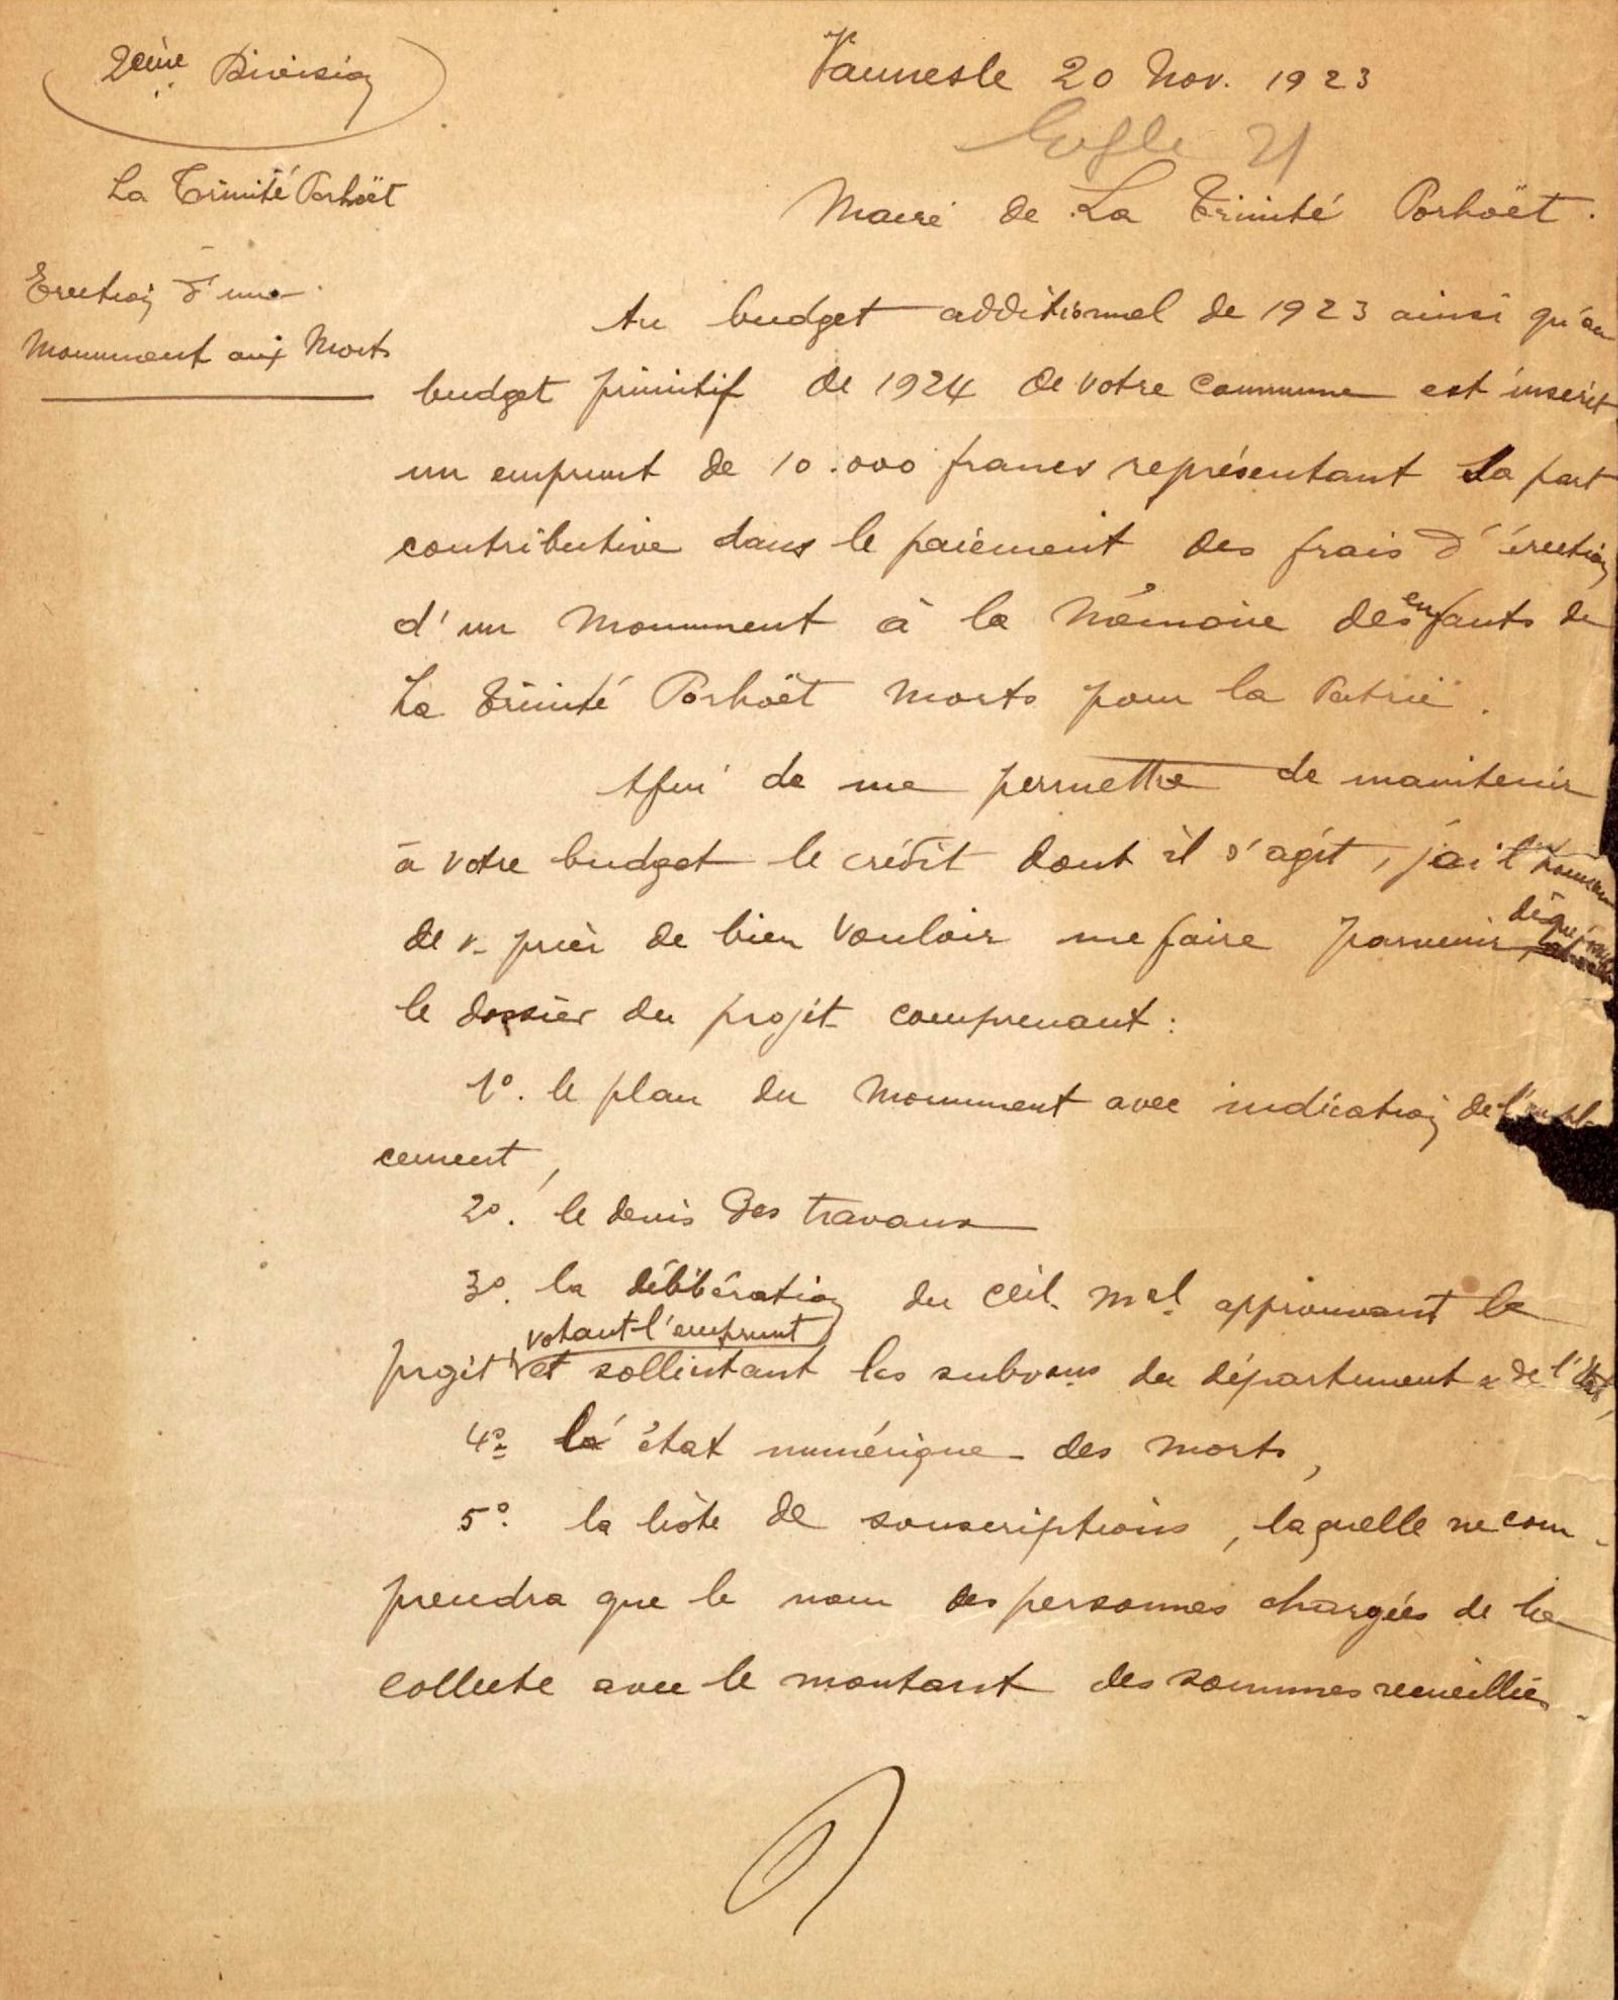 2ème Division
Vannes le 20 Nov. 1923
La Trinité Porhoët
Maire de La Trinité Porhoët.
Erection d'un
Monument aux Morts
Au budget additionnel de 1923 ainsi qu'au
budget primitif de 1924 de votre commune est inscrit
un emprunt de 10.000 francs représentant la part
contributive dans le paiement des frais d'érection
d'un Monument à la Mémoire des enfants de
La Trinité Porhoët Morts pour la Patrie.
Afin de me permettre de maintenir
à votre budget le crédit dont il s'agit, j'ai l'honneur
de v. prier de bien vouloir me faire parvenir,
le dossier du projet comprenant :
1º. le plan du Monument avec indication de l'empla
cement,
2º. le devis des travaux
3º. la délibération du Ceil. Mal. approuvant le
votant l'emprunt
projet, et sollicitant les subvons du département & de l'Etat,
4º état numérique des morts,
5º. la liste de souscriptions, laquelle ne com-
prendra que le nom des personnes chargées de la
collecte avec le montant des sommes recueillies.